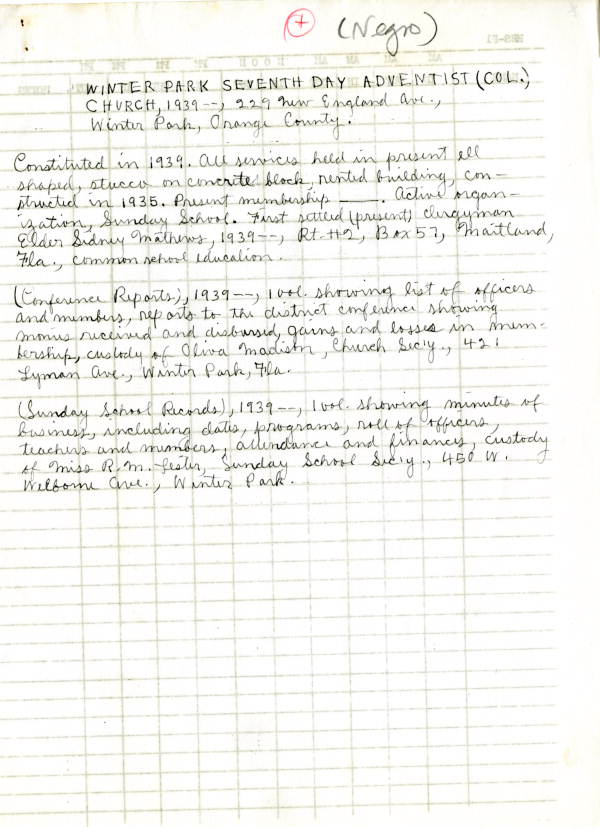 + (Negro)
WINTER PARK SEVENTH DAY ADVENTIST (COL.)
CHURCH, 1939--, 229 New England Ave.,
Winter Park, Orange County.
Constituted in 1939. All services held in present ell
shaped, stucco on concrete block, rented building, con-
structed in 1935. Present membership ____. Active organ-
ization, Sunday School. First settled (present) clergyman
Elder Sidney Mathews, 1939--, Rt. #2, Box 57, Maitland,
Fla., common school education.
(Conference Reports), 1939--, 1 vol. showing list of officers
and members, reports to the district conference showing
monies received and disbursed, gains and losses in mem-
bership, custody of Oliva Madison, Church Sec'y., 421
Lyman Ave., Winter Park, Fla.
(Sunday School Records), 1939--, 1 vol. showing minutes of
business, including dates, programs, roll of officers,
teachers and members, attendance and finances, custody
of Miss R. M. Lester, Sunday School Sec'y., 450 W.
Welborne Ave., Winter Park.